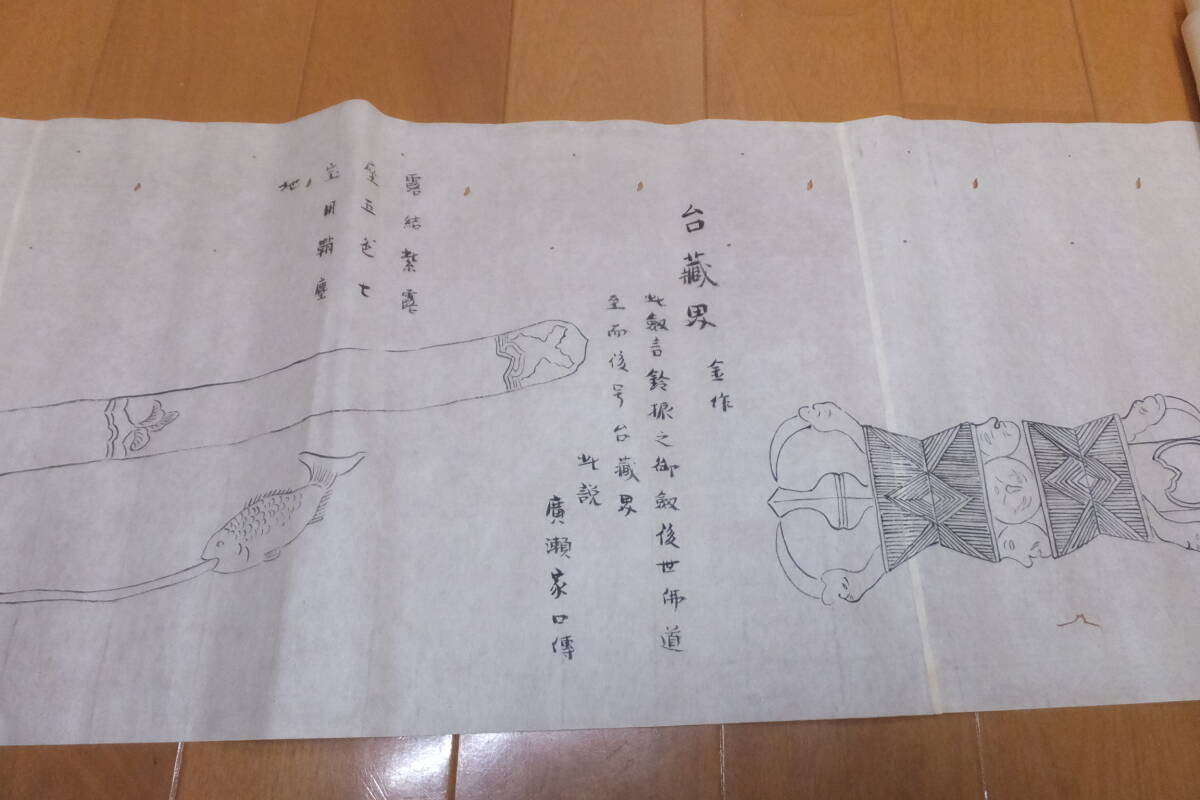 台藏界
金作
此劔吉鈴振之御劔後世佛道
至而後号台藏界
此説
廣瀬家口傳
露結紫露
五色七
宝用鞘塵
地